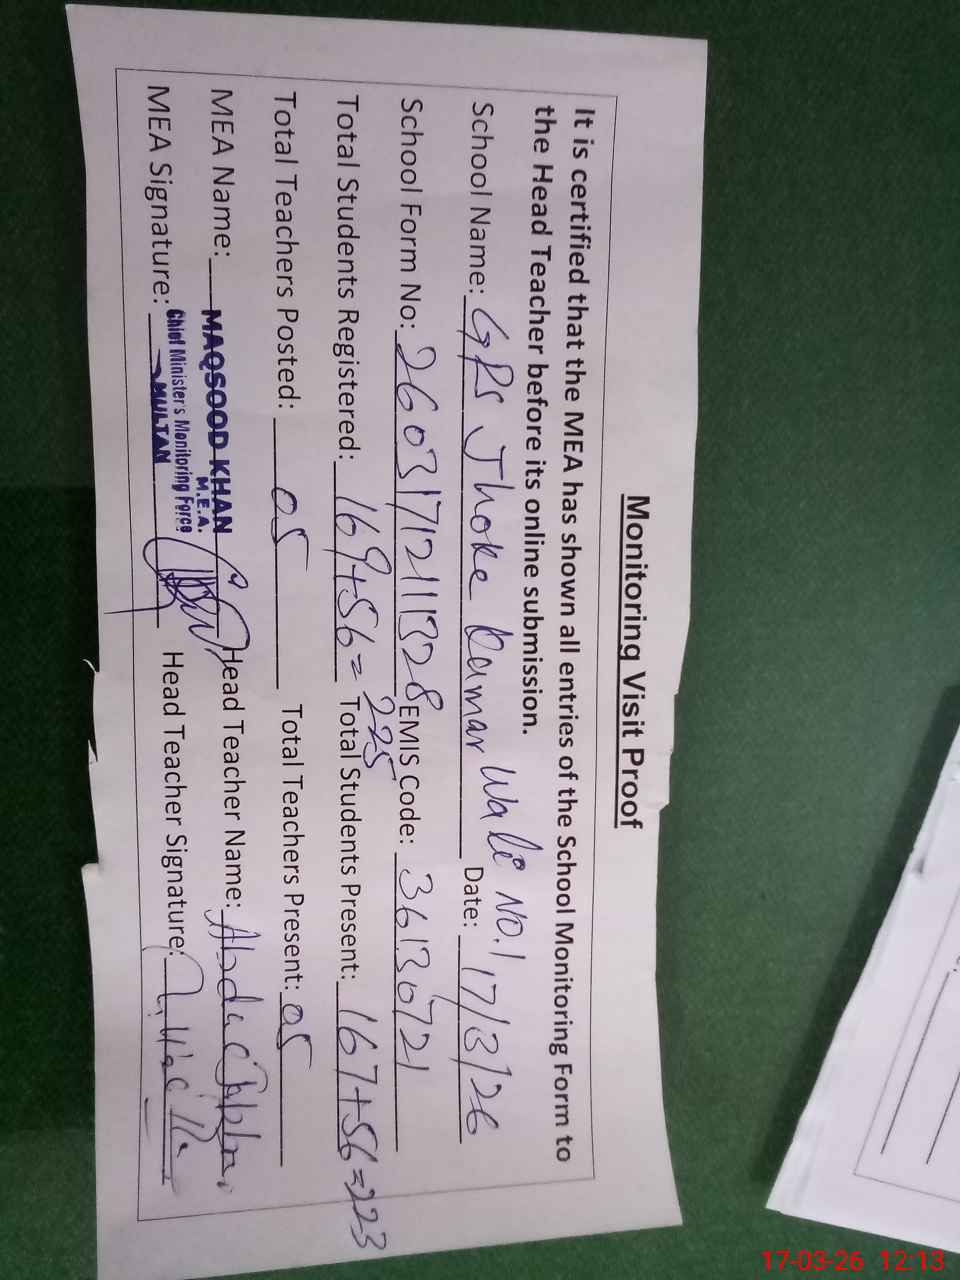 Monitoring Visit Proof
It is certified that the MEA has shown all entries of the School Monitoring Form to
the Head Teacher before its online submission.
School Name: GPS Jhoke Qamar Wali No.1 Date: 17/3/26
School Form No: 26031712111328 EMIS Code: 36130721
Total Students Registered: 169+56=225 Total Students Present: 167+56=223
Total Teachers Posted: 05 Total Teachers Present: 05
MEA Name: MAQSOOD KHAN Head Teacher Name:
M.E.A.
Chief Minister's Monitoring Force
MEA Signature: MULTAN Head Teacher Signature:
17-03-26 12:13